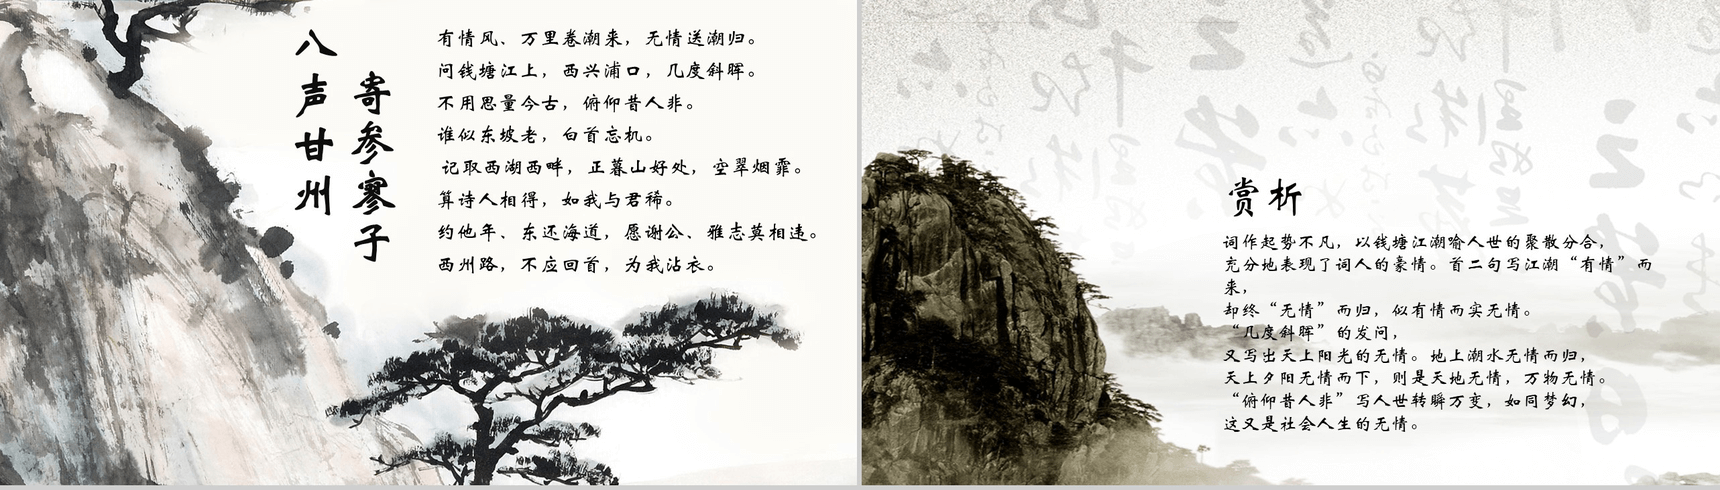 八声甘州
寄参寥子
有情风、万里卷潮来，无情送潮归。
问钱塘江上，西兴浦口，几度斜晖。
不用思量今古，俯仰昔人非。
谁似东坡老，白首忘机。
记取西湖西畔，正暮山好处，空翠烟霏。
算诗人相得，如我与君稀。
约他年、东还海道，愿谢公、雅志莫相违。
西州路，不应回首，为我沾衣。
赏析
词作起势不凡，以钱塘江潮喻人世的聚散分合，
充分地表现了词人的豪情。首二句写江潮“有情”而
来，
却终“无情”而归，似有情而实无情。
“几度斜晖”的发问，
又写出天上阳光的无情。地上潮水无情而归，
天上夕阳无情而下，则是天地无情，万物无情。
“俯仰昔人非”写人世转瞬万变，如同梦幻，
这又是社会人生的无情。